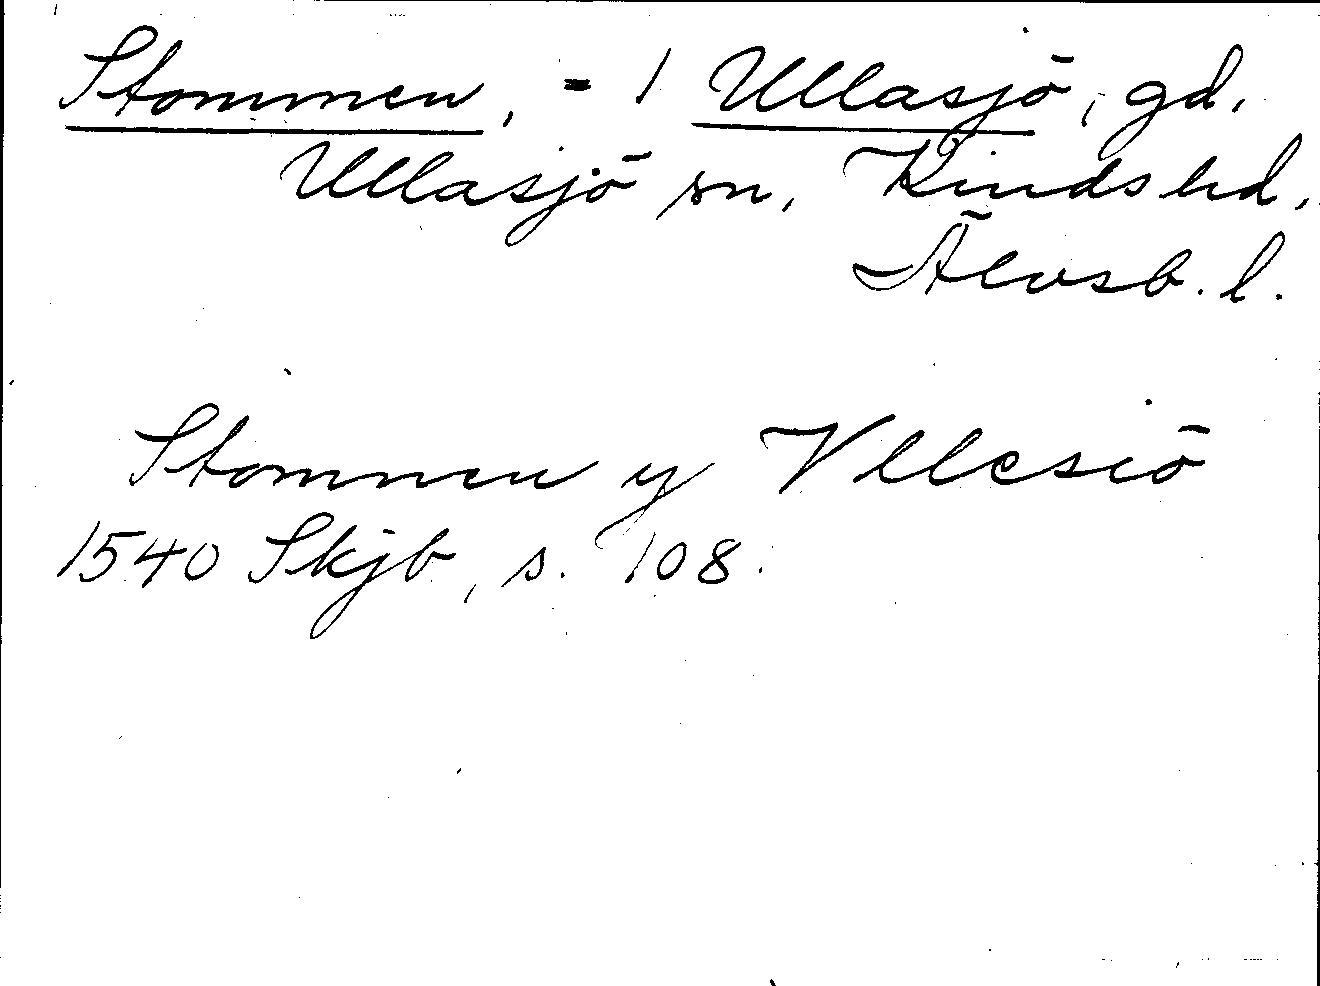 Stommen, = 1 Ullasjö, gd.
Ullasjö sn, Kinds hd,
Älvsb. l.
Stommen y Vllesiö
1540 Skjb, s. 108.